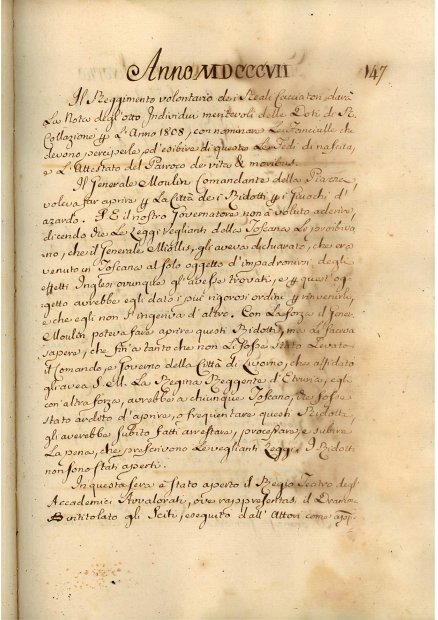 Anno MDCCCVII
147
Il Reggimento volontario de i Reali Cacciatori darà
La Nota degl'otto Individui meritevoli delle Doti di R.
Collazione p L'Anno 1808, con nominare Le Fanciulle che
devono percipirle, ed esibire di queste Le Fedi di nascita,
e L'Attestato del Parroco de vita & moribus.
Il Generale Moulin Comandante della Piazza,
voleva far aprire p La Città de i Ridotti p i Giuochi d'
azardo. S. E. il nostro Governatore non à voluto aderire,
dicendo che Le Leggi Veglianti della Toscana Le proibiva
no, che il Generale Miollis, gli aveva dichiarato, che era
venuto in Toscana al solo oggetto d'impadronirsi degli
effetti Inglesi ovunque gl'avesse trovati, e p quest'og
getto avrebbe egli dato i più rigorosi ordini p rinvenirli,
e che egli non s'ingeriva d'altro. Con La forza il Gener.
Moulin poteva fare aprire questi Ridotti, ma Le faceva
sapere, che fin'a tanto che non Li fosse stato Levato
il Comando, e Governo della Città di Livorno, che affidato
gli avea S. M. La Regina Reggente d'Etruria, egli
con altra forza, avrebbe a chiunque Toscano, che fosse
stato ardito d'aprire, o frequentare questi Ridotti,
gli averebbe subito fatti arrestare, processare, e subire
La pena, che prescrivono Le veglianti Leggi. I Ridotti
non sono stati aperti.
In questa sera è stato aperto il Regio Teatro degl'
Accademici Avvalorati, ove rappresentasi il Dramma
intitolato gli Sciti, eseguito dall'Attori come app.